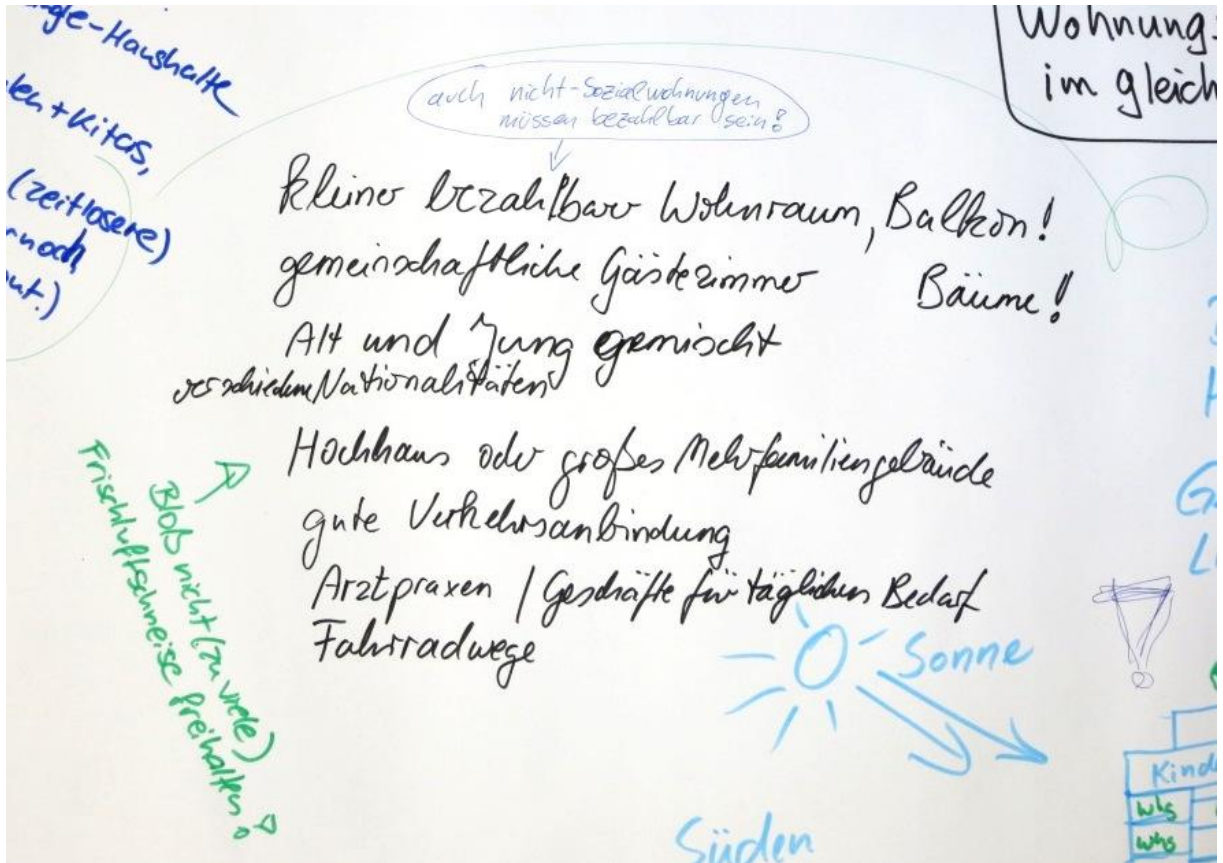 Haushalte
+ Kitas,
(zeitlosere)
Wohnung
im gleich
auch nicht-Sozialwohnungen
müssen bezahlbar sein!
kleiner bezahlbarer Wohnraum, Balkon!
gemeinschaftliche Gästezimmer Bäume!
Alt und Jung gemischt
verschiedene Nationalitäten
Hochhaus oder großes Mehrfamiliengebäude
gute Verkehrsanbindung
Arztpraxen / Geschäfte für täglichen Bedarf
Fahrradwege
Bloß nicht (zu viele)
Frischluftschneise freihalten!
Sonne
Süden
Kinde
whs
whs